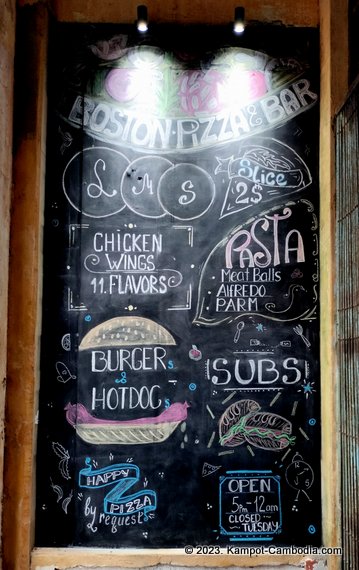 BOSTON·PIZZA & BAR
L M S
Slice
2$
CHICKEN
WINGS
11.FLAVORS
PASTA
Meat Balls
AlFREDO
PARM
BURGERs
&
HOTDOGs
SUBS
HAPPY
PIZZA
by
request
OPEN
5pm-12am
CLOSED
TUESDAY
© 2023. Kampot-Cambodia.com